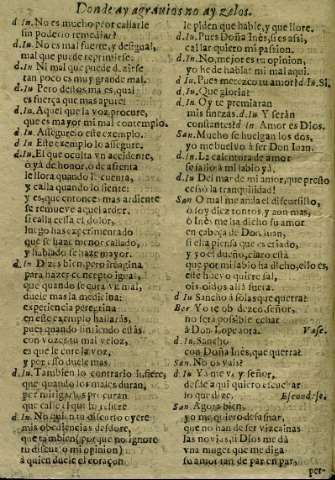 Donde ay agrauios no ay zelos.
d. In. No es mucho por callarle
sin poderlo remediar?
d. Iu. No es mal fuerte, y desigual,
mal que puede reprimirse.
d. In. Ni mal que puede dezirse
tan poco es muy grande mal.
d. Iu. Pero dellos ma es, qual
es fuerça que mas apure?
d. In. Aquel que la voz procure,
que es mayor mi mal contemplo.
d. Iu. Assegureo este exemplo.
d. In. Este exemplo lo assegure.
d. Iu. El que oculta vn accidente,
ò ya de honor, ò de afrenta
le llora quando le cuenta,
y calla quando lo siente:
y es, que entonces mas ardiente
se remueue aquel ardor,
si calla cessa el dolor,
luego has experimentado
que se haze menor callado,
y hablado se haze mayor.
d. In. Dizes bien, pero imagina
para hazer concepto igual,
que quando se cura vn mal,
duele mas la medicina:
experiencia peregrina
en este exemplo hallaràs,
pues quando sintiendo estàs
con vozes tu mal veloz,
es que le cura la voz,
y por esso duele mas.
d. Iu. Tambien lo contrario infiere,
que quando los males duran,
por mitigarlos procuran
que calle el que los tiene
d. In. No quien tu discurso oyere
mis obediencias desdore,
que tambien (porque no ignore
tu discurso mi opinion)
à quien duele el coraçon
le piden que hable, y que llore.
d. Iu. Pues Doña Inès, si es assi,
callar quiero mi passion.
d. In. No, mejor es tu opinion,
yo he de hablar mi mal aqui.
d. Iu. Pues merezco tu amor? d. In. Si.
d. Iu. Que gloria!
d. In. Oy te premiaran
mis finezas. d. Iu. Y seràn
constantes? d. In. Amor es Dios.
San. Mucho se huelgan los dos,
yo me bueluo à ser Don Iuan.
d. In. La calentura de amor
se saliò à mi labio yà,
d. Iu. Del mar de mi amor, que presto
cessò la tranquilidad!
San. O mal me anda el discursillo,
ò soy diez tontos, y aun mas,
ò Inès me ha dicho su amor
en cabeça de Don Iuan,
si ella piensa que es criado,
y yo el dueño, claro està
que por mi labio ha dicho, ello es,
este huevo quiere sal,
ois, oidos allà fuera.
d. Iu. Sancho à solas que querrà?
Ber. Yo te obedezco, señor,
no serà possible echar
à Don Lope aora. Vase.
d. In. Sancho
con Doña Inès, que querrà?
San. No os vais?
d. Iu. Ya me voy, señor,
desde aqui quiero escuchar
lo que dize. Escondese.
San. Agora bien,
yo me quiero desasnar,
que no han de ser vizcainas
las novias, si Dios me dà
vna muger que me diga
su amor tan de par en par,
per-